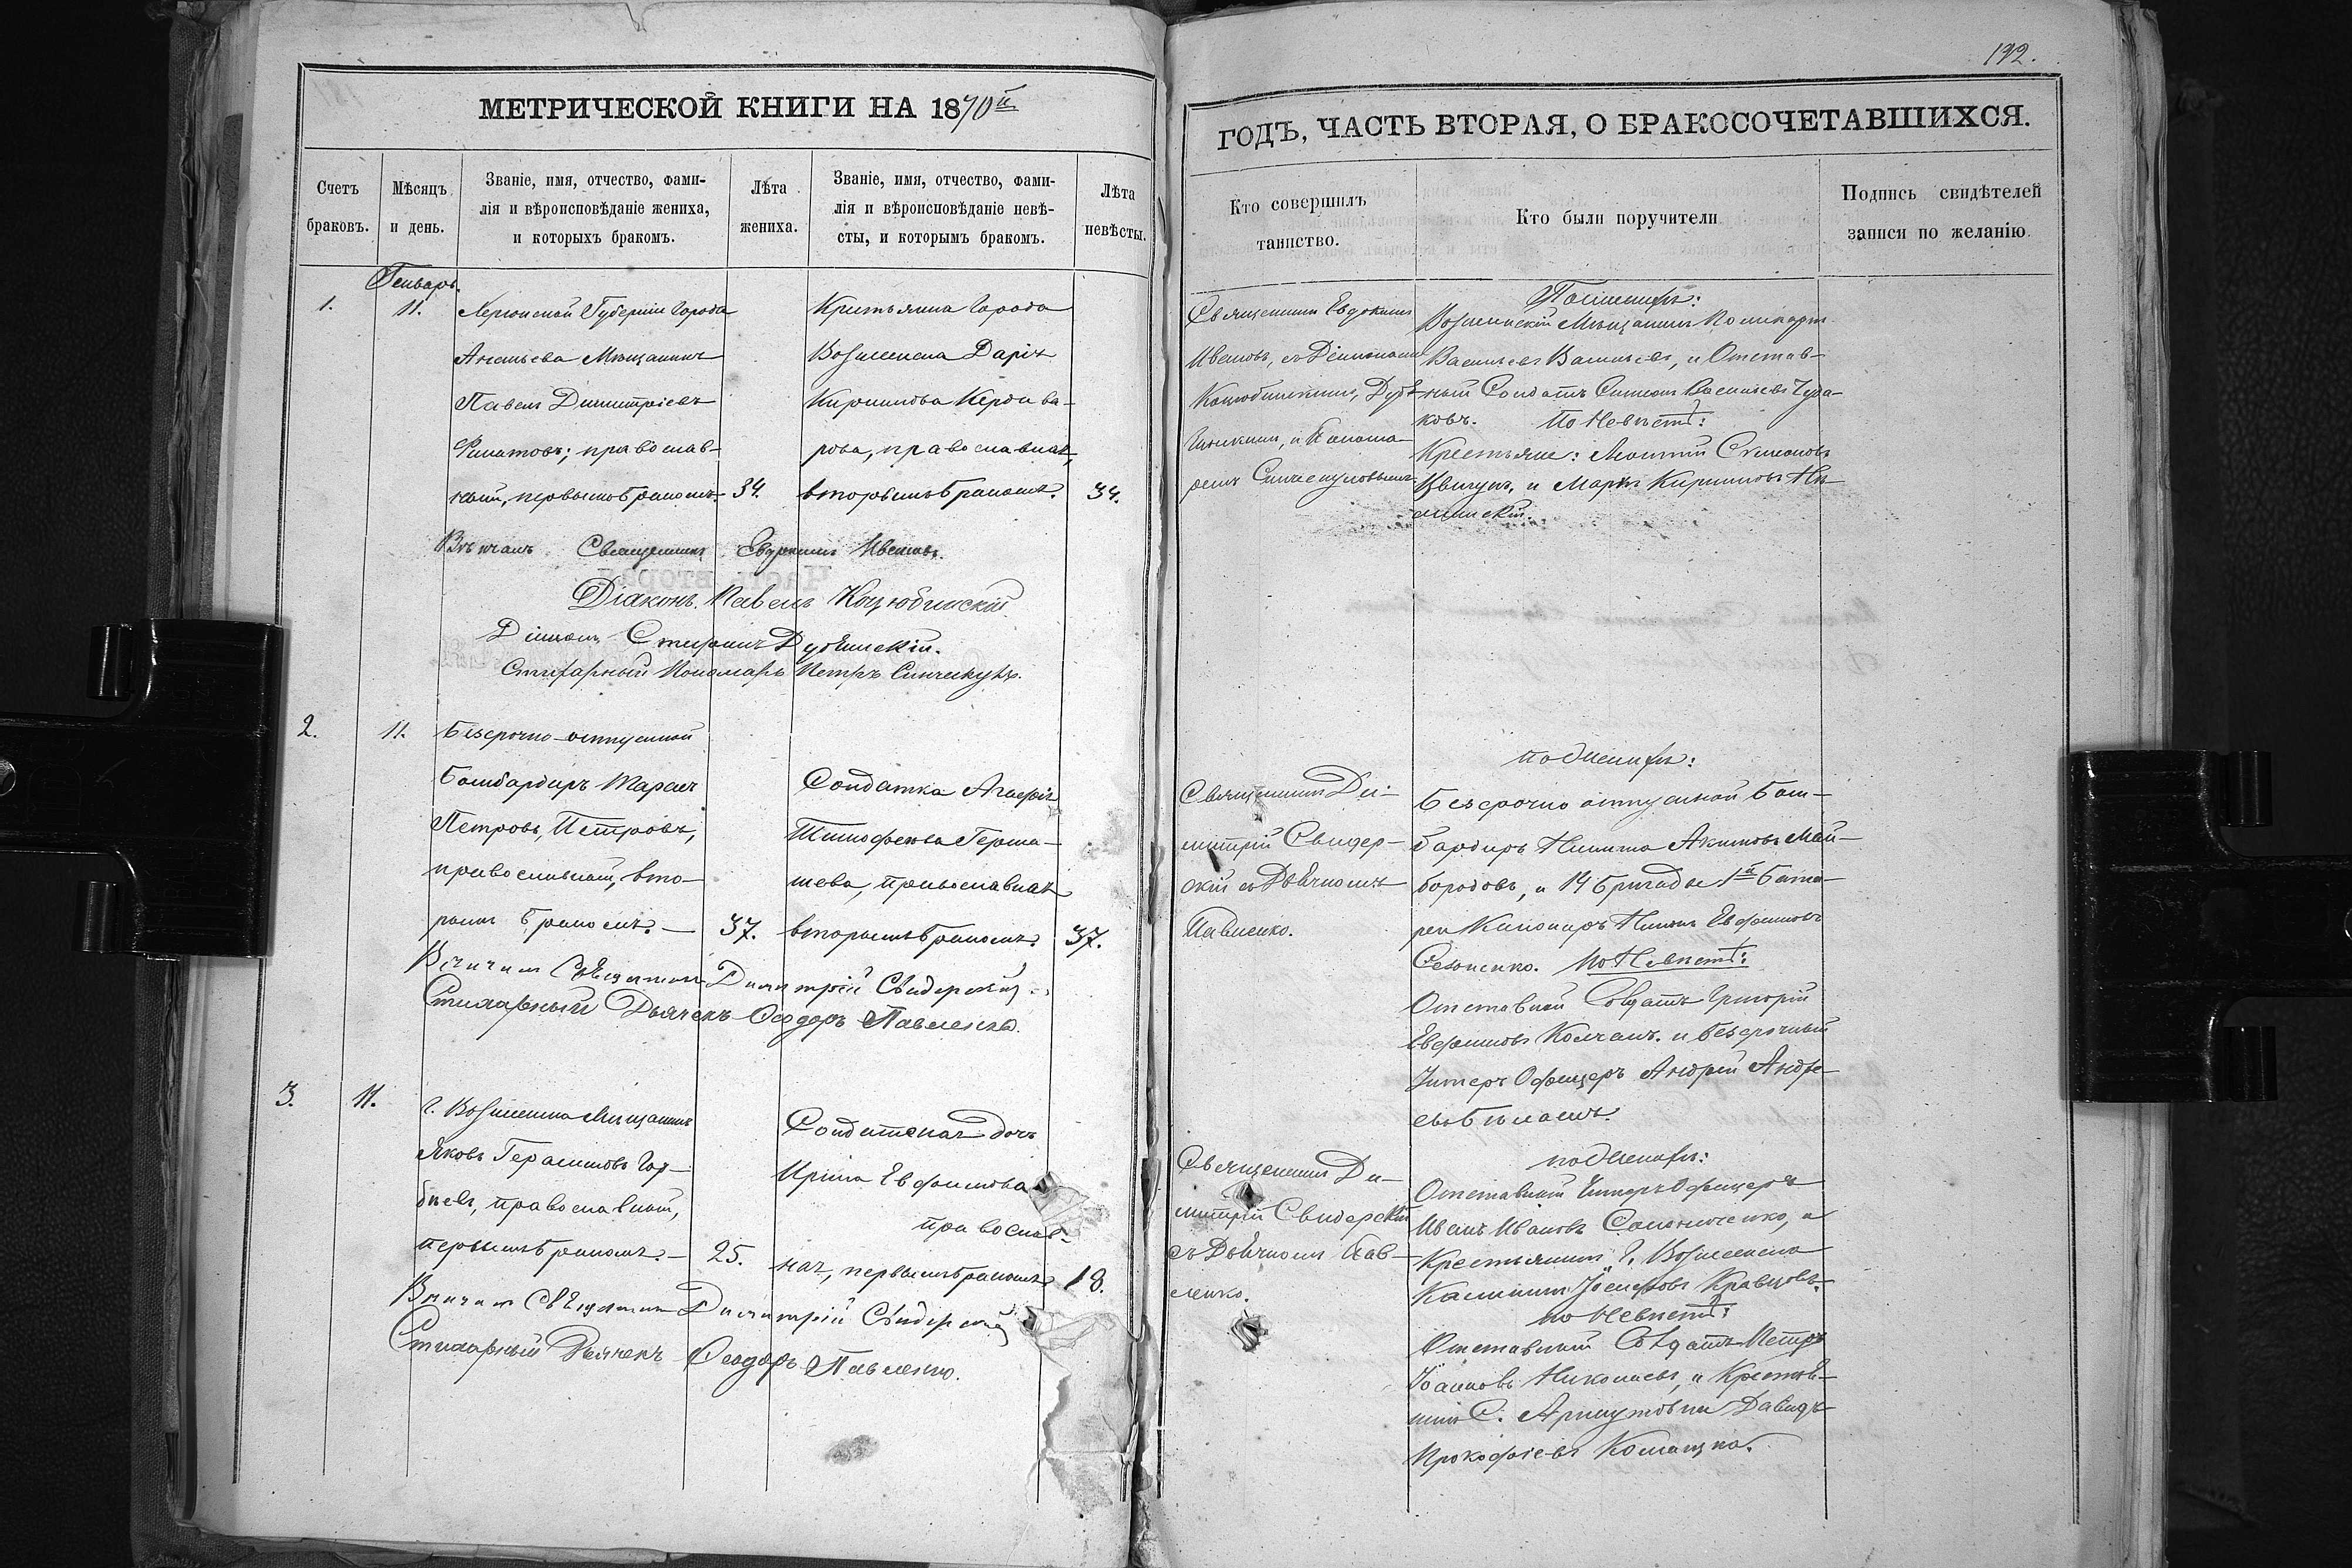 192.
МЕТРИЧЕСКОЙ КНИГИ НА 1870й
ГОДЪ, ЧАСТЬ ВТОРАЯ, О БРАКОСОЧЕТАВШИХСЯ.
Счетъ
браковъ.
Мѣсяцъ
и день.
Званіе, имя, отчество, фами-
лія и вѣроисповѣданіе жениха,
и которыхъ бракомъ.
Лѣта
жениха.
Званіе, имя, отчество, фами-
лія и вѣроисповѣданіе невѣ-
сты, и которымъ бракомъ.
Лѣта
невѣсты.
Кто совершилъ
таинство.
Кто были поручители
Подпись свидѣтелей
записи по желанію
Генварь.
1.
11.
Херсонской Губерніи Города
Ананьева Мѣщанинъ
Павелъ Димитріевъ
Филатовъ; православ-
ный, первымъ бракомъ.
34.
Крестьянка Города
Вознесенска Дарія
Кириллова
православная,
вторымъ бракомъ.
34.
Священникъ Евдокимъ
Ивановъ, съ Діаконами
Коцюбинскимъ,
и Понома-
ремъ
По женихѣ:
Вознесенскій Мѣщанинъ Поликарпъ
Васильевъ Васильевъ, и Отстав-
ный Солдатъ Симеонъ Васильевъ Чуда-
ковъ. По Невѣстѣ:
Крестьяне: Леонтій Симеоновъ
и Марко Кирилловъ
Вѣнчалъ Священникъ Евдокимъ Ивановъ.
Діаконъ Павелъ Коцюбинскій
Діаконъ Стефанъ
Стихарный Пономарь Петръ
2.
11.
Безсрочно-отпускной
Бомбардиръ Тарасъ
Петровъ, Петровъ,
православный, вто-
рымъ бракомъ.
37.
Солдатка Агафія
Тимофеева Герма-
шева, православная
вторымъ бракомъ.
37.
Священникъ Ди-
митрій Свидер-
скій съ Дьячкомъ
Павленко.
по Женихѣ:
Безсрочно отпускной Бом-
бардиръ Никита Акимовъ Май-
бородовъ, и 14 бригады 1й бата-
реи Канониръ Никонъ Евфимовъ
По Невѣстѣ:
Отставной Солдатъ Григорій
Евфимовъ Колчакъ. и безсрочный
Унтеръ Офицеръ Андрей Андре-
евъ
Вѣнчалъ Священникъ Димитрій Свидерскій
Стихарный Дьячекъ Ѳеодоръ Павленко.
3.
11.
г. Вознесенска Мѣщанинъ
Яковъ Герасимовъ Гор-
бневъ, православный,
первымъ бракомъ.
25.
Солдатская дочь
Ирина Евфимова
православ-
ная, первымъ бракомъ
18.
Священникъ Ди-
митрій Свидерскій
съ Дьячкомъ Пав-
ленко.
по Женихѣ:
Отставной Унтеръ Офицеръ
Иванъ Ивановъ и
Крестьянинъ г. Вознесенска
Калинникъ Іосифовъ Кравцовъ.
по Невѣстѣ:
Отставной Солдатъ Петръ
Іоанновъ Николаевъ, и Крестья-
нинъ С. Арнаутовки Давидъ
Прокофіевъ
Вѣнчалъ Священникъ Димитрій Свидерскій
Стихарный Дьячекъ Ѳеодоръ Павленко.